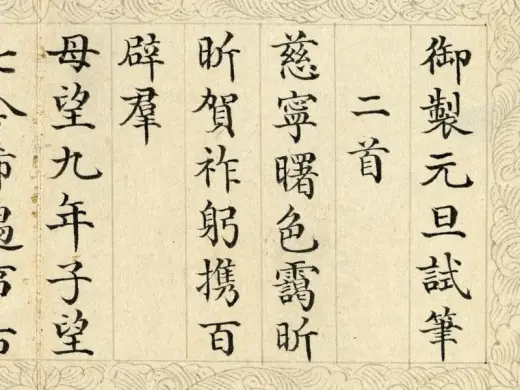 御製元旦試筆
二首
慈寧曙色靄昕
昕賀祚躬携百
辟羣
母望九年子望